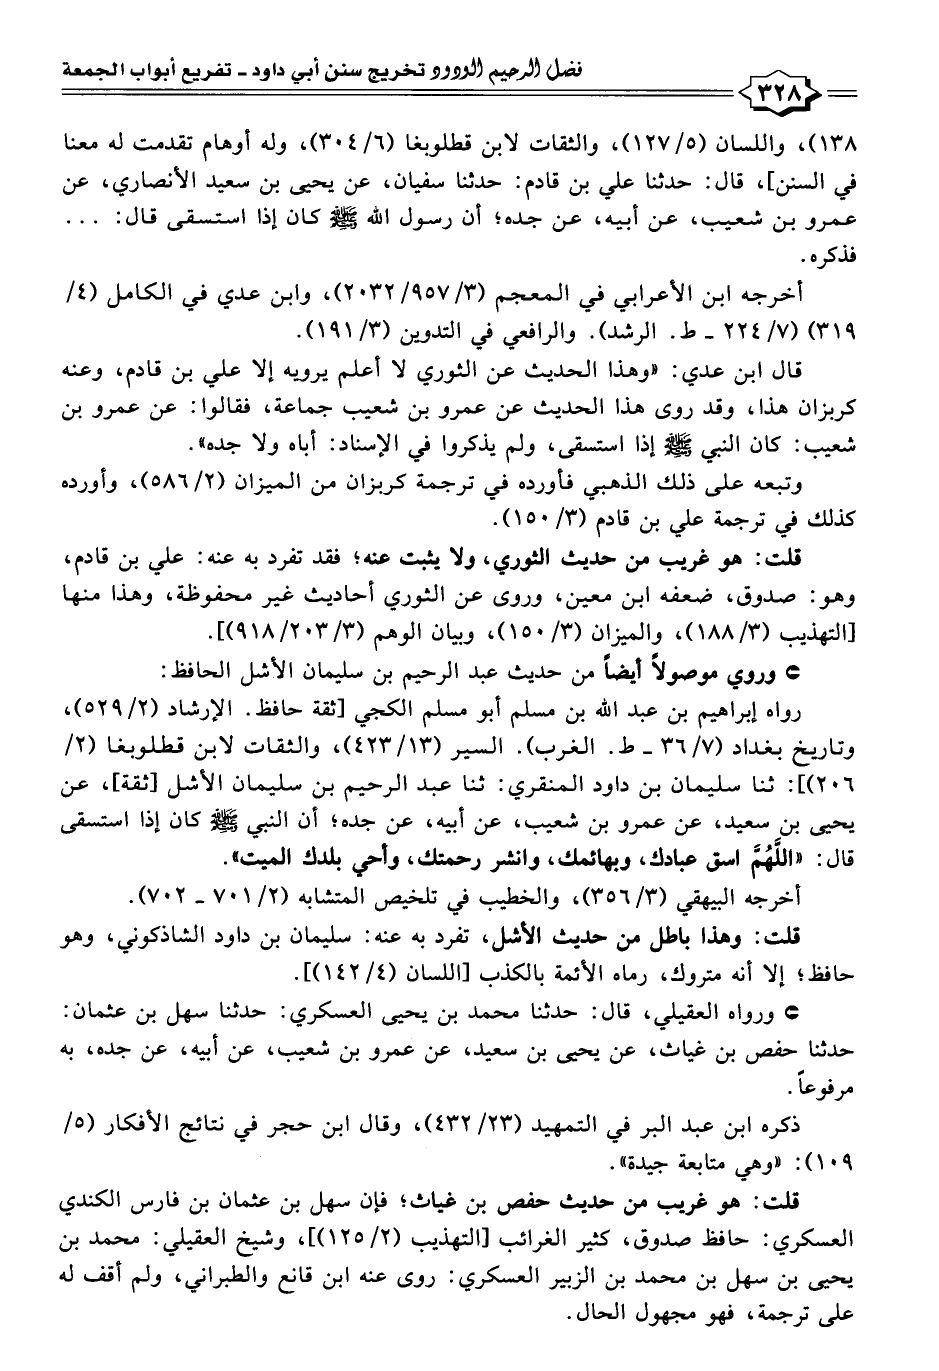 فضل الرحيم الودود تخريج سنن أبي داود - تفريع أبواب الجمعة
٣٢٨
١٣٨)، واللسان (١٢٧/٥)، والثقات لابن قطلوبغا (٣٠٤/٦)، وله أوهام تقدمت له معنا
في السنن]، قال: حدثنا علي بن قادم: حدثنا سفيان، عن يحيى بن سعيد الأنصاري، عن
عمرو بن شعيب، عن أبيه، عن جده؛ أن رسول الله ﷺ كان إذا استسقى قال: ...
فذكره.
أخرجه ابن الأعرابي في المعجم (٢٠٣٢/٩٥٧/٣)، وابن عدي في الكامل (٤/
٣١٩) (٢٢٤/٧ - ط. الرشد). والرافعي في التدوين (١٩١/٣).
قال ابن عدي: «وهذا الحديث عن الثوري لا أعلم يرويه إلا علي بن قادم، وعنه
كربزان هذا، وقد روى هذا الحديث عن عمرو بن شعيب جماعة، فقالوا: عن عمرو بن
شعيب: كان النبي ﷺ إذا استسقى، ولم يذكروا في الإسناد: أباه ولا جده».
وتبعه على ذلك الذهبي فأورده في ترجمة كربزان من الميزان (٥٨٦/٢)، وأورده
كذلك في ترجمة علي بن قادم (١٥٠/٣).
قلت: هو غريب من حديث الثوري، ولا يثبت عنه؛ فقد تفرد به عنه: علي بن قادم،
وهو: صدوق، ضعفه ابن معين، وروى عن الثوري أحاديث غير محفوظة، وهذا منها
[التهذيب (١٨٨/٣)، والميزان (١٥٠/٣)، وبيان الوهم (٩١٨/٢٠٣/٣)].
⮊ وروي موصولاً أيضاً من حديث عبد الرحيم بن سليمان الأشل الحافظ:
رواه إبراهيم بن عبد الله بن مسلم أبو مسلم الكجي [ثقة حافظ. الإرشاد (٥٢٩/٢)،
وتاريخ بغداد (٣٦/٧ - ط. الغرب). السير (٤٢٣/١٣)، والثقات لابن قطلوبغا (٢/
٢٠٦)]: ثنا سليمان بن داود المنقري: ثنا عبد الرحيم بن سليمان الأشل [ثقة]، عن
يحيى بن سعيد، عن عمرو بن شعيب، عن أبيه، عن جده؛ أن النبي ﷺ كان إذا استسقى
قال: «اللَّهُمَّ اسق عبادك، وبهائمك، وانشر رحمتك، وأحي بلدك الميت».
أخرجه البيهقي (٣٥٦/٣)، والخطيب في تلخيص المتشابه (٧٠١/٢ - ٧٠٢).
قلت: وهذا باطل من حديث الأشل، تفرد به عنه: سليمان بن داود الشاذكوني، وهو
حافظ؛ إلا أنه متروك، رماه الأئمة بالكذب [اللسان (١٤٢/٤)].
⮊ ورواه العقيلي، قال: حدثنا محمد بن يحيى العسكري: حدثنا سهل بن عثمان:
حدثنا حفص بن غياث، عن يحيى بن سعيد، عن عمرو بن شعيب، عن أبيه، عن جده، به
مرفوعاً.
ذكره ابن عبد البر في التمهيد (٤٣٢/٢٣)، وقال ابن حجر في نتائج الأفكار (٥/
١٠٩): «وهي متابعة جيدة».
قلت: هو غريب من حديث حفص بن غياث؛ فإن سهل بن عثمان بن فارس الكندي
العسكري: حافظ صدوق، كثير الغرائب [التهذيب (١٢٥/٢)]، وشيخ العقيلي: محمد بن
يحيى بن سهل بن محمد بن الزبير العسكري: روى عنه ابن قانع والطبراني، ولم أقف له
على ترجمة، فهو مجهول الحال.